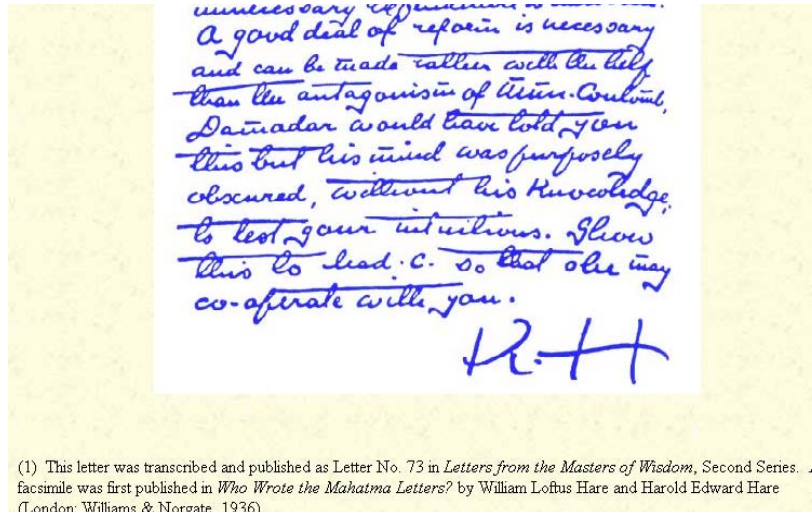 unnecessary
A good deal of reform is necessary
and can be made rather with the help
than the antagonism of Mme. Coulomb,
Damadar would have told you
this but his mind was purposely
obscured, without his knowledge,
to test your intuitions. Show
this to Mad. C. so that she may
co-operate with you.
K.H
(1) This letter was transcribed and published as Letter No. 73 in Letters from the Masters of Wisdom, Second Series.
facsimile was first published in Who Wrote the Mahatma Letters? by William Loftus Hare and Harold Edward Hare
(London: Williams & Norgate, 1936)